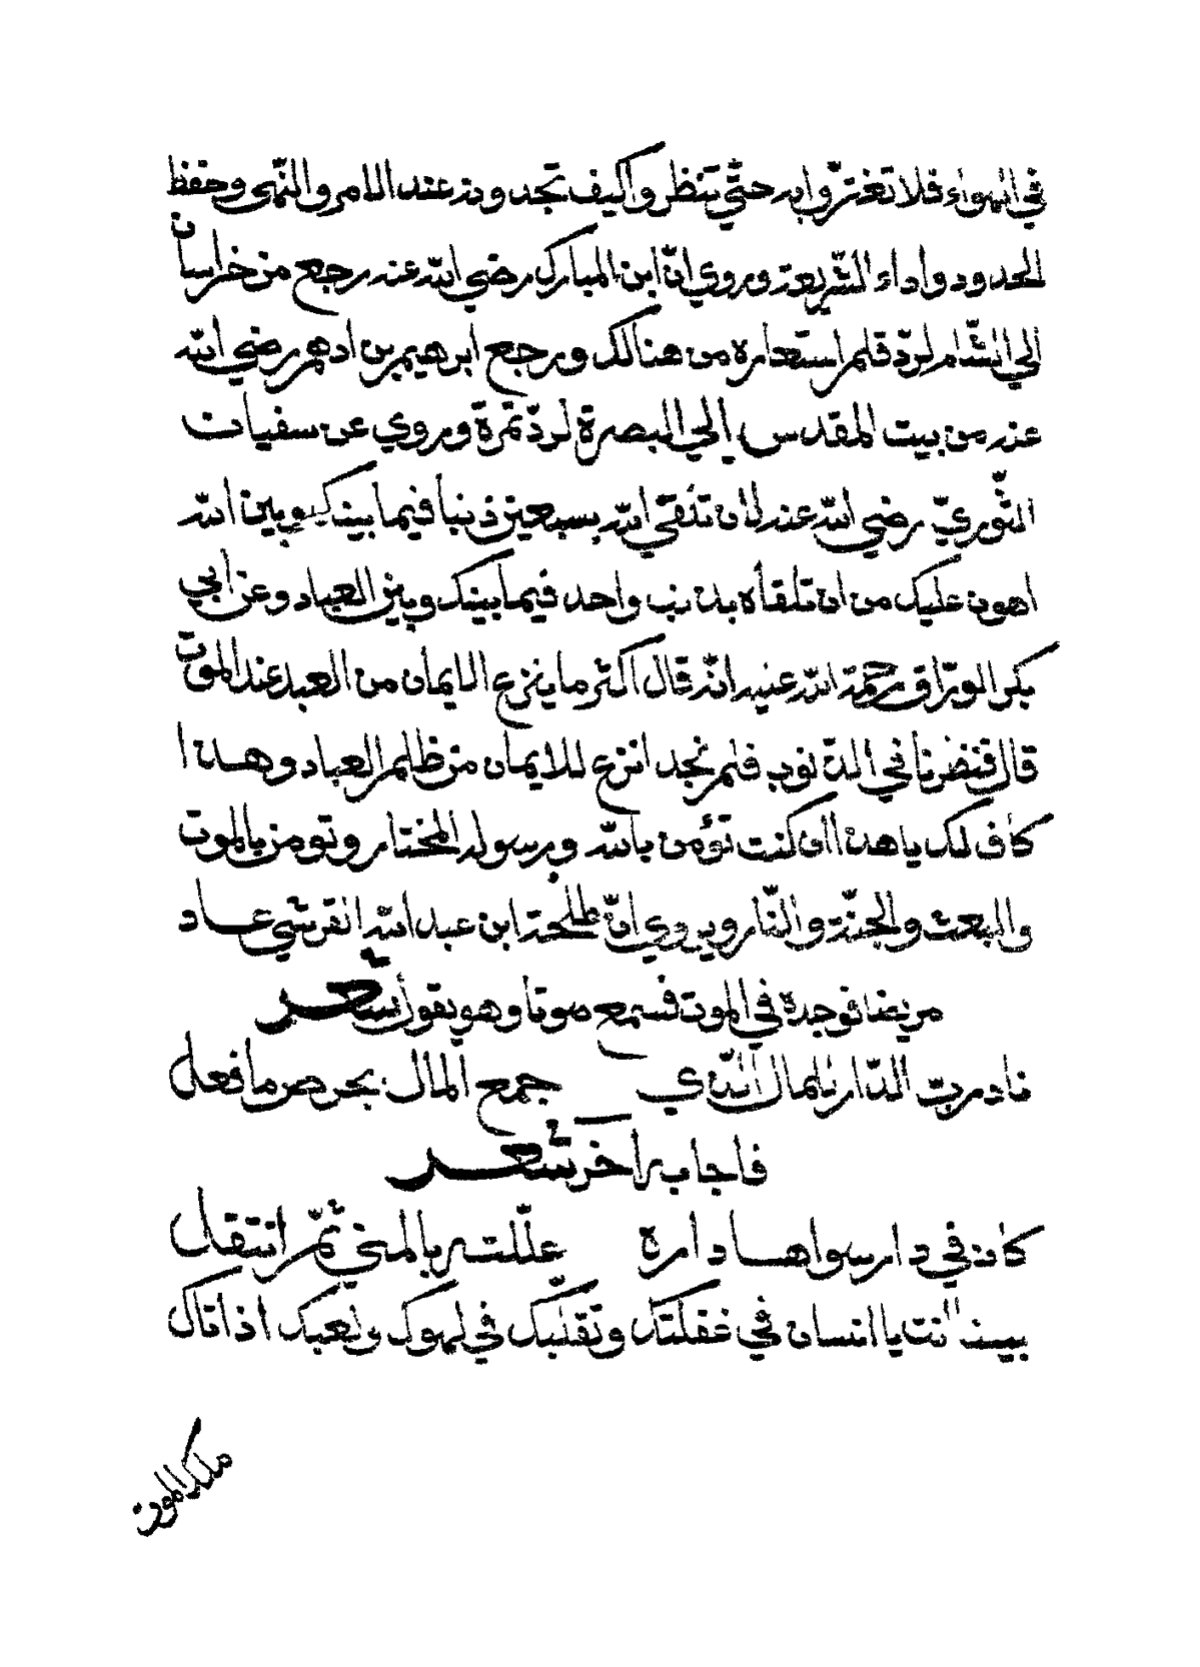 في الهواء فلا تغترّوا به حتّي تنظروا كيف تجدونه عند الامر والنّهي وحفظ
الحدود واداء الشّريعة وروي انّ ابن المبارك رضي الله عنه رجع من خراسان
الي الشّام لردّ قلم استعاره من هنالك ورجع ابرهيم بن ادهم رضي الله
عنه من بيت المقدس الي البصرة لردّ تمرة وروي عن سفيان
الثّوريّ رضي الله عنه لان تلقي الله بسبعين ذنبا فيما بينك وبين الله
اهون عليك من ان تلقاه بذنب واحد فيما بينك وبين العباد وعن ابي
بكر الورّاق رحمة الله عليه انّه قال اكثر ما ينزع الايمان من العبد عند الموت
قال فنضرنا في الذّنوب فلم نجد انزع للايمان من ظلم العباد وهذا
كاف لك يا هذا ان كنت تؤمن بالله ورسوله المختار وتومن بالموت
والبعث والجنّة والنّار ويروي انّ طلحة ابن عبد الله القرشي عاد
مريضا فوجده في الموت فسمع صوتا وهو يقول شعر
ناد ربّ الدّار ذا المال الّذي جمع المال بحرص ما فعل
فاجابه آخر شعر
كان في دار سواها داره علّلته بالمني ثمّ انتقل
بينما انت يا انسان في غفلتك وتقلّبك في لهوك ولعبك اذ اتاك
ملك الموت